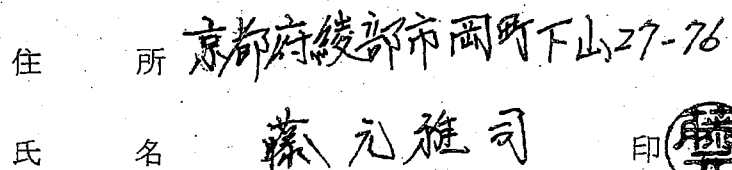 住 所 京都府綾部市岡町下山27-76
氏 名 藤元雅司 印